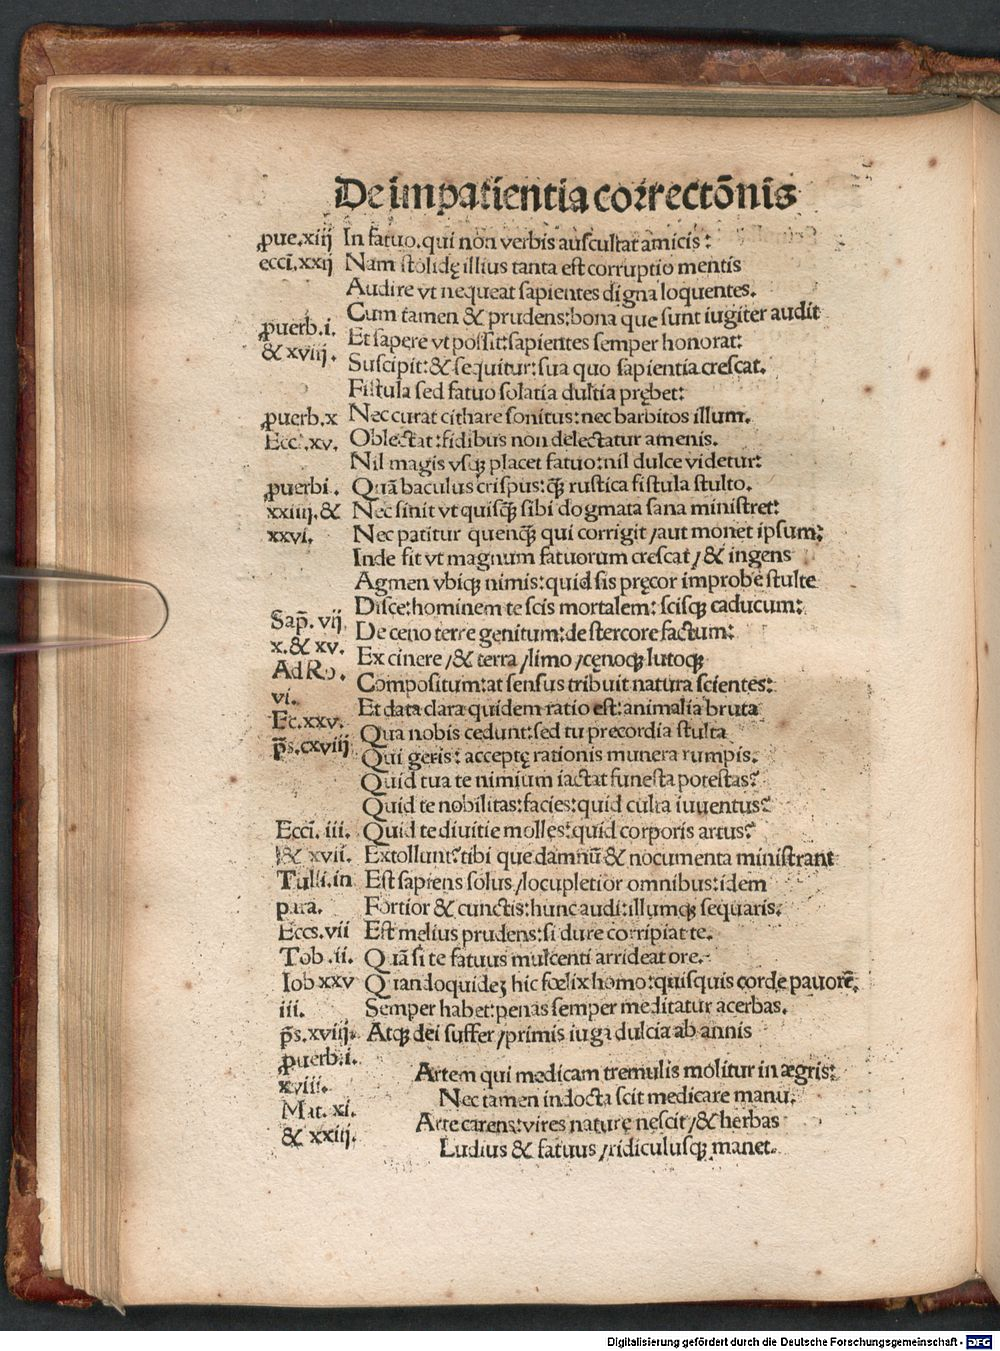 De impatientia correctõnis
ꝓue.xiij In fatuo.qui non verbis auscultat amicis:
eccĩ.xxij Nam stolidę illius tanta est corruptio mentis
Audire vt nequeat sapientes digna loquentes.
Cum tamen & prudens:bona que sunt iugiter audit
ꝓuerb.i. Et sapere vt possit:sapientes semper honorat:
& xviij. Suscipit:& sequitur:sua quo sapientia crescat.
Fistula sed fatuo solatia dultia prębet:
ꝓuerb.x Nec curat cithare sonitus:nec barbitos illum.
Ecc.xv. Oblectat:fidibus non delectatur amenis.
Nil magis vsqꝫ placet fatuo:nil dulce videtur:
ꝓuerbi. Quã baculus crispus:q̃ꝫ rustica fistula stulto.
xxiiij.& Nec sinit vt quisq̃ꝫ sibi dogmata sana ministret:
xxvi. Nec patitur quenq̃ꝫ qui corrigit/aut monet ipsum:
Inde fit vt magnum fatuorum crescat/& ingens
Agmen vbiqꝫ nimis:quid sis pręcor improbe stulte
Disce:hominem te scis mortalem:scisqꝫ caducum:
Sap̃. vij De ceno terre genitum:de stercore factum:
x.& xv. Ex cinere/& terra/limo/cęnoqꝫ lutoqꝫ
Ad Ro. Compositum:at sensus tribuit natura scientes:
vi. Et data clara quidem ratio est:animalia bruta
Ec.xxv. Qua nobis cedunt:sed tu precordia stulta
p̃s.cxviij Qui geris: acceptę rationis munera rumpis.
Quid tua te nimium iactat funesta potestas?
Quid te nobilitas:facies:quid culta iuventus?
Eccĩ. iii. Quid te divitie molles:quid corporis artus?
& xvii. Extollunt?tibi que damnũ & nocumenta ministrant
Tulli.in Est sapiens solus/locupletior omnibus:idem
para. Fortior & cunctis:hunc audi:illumqꝫ sequaris.
Eccs.vii Est melius prudens:si dure corripiat te.
Tob.ii. Quã si te fatuus mulcenti arrideat ore.
Iob xxv Quandoquideꝫ hic fœlix homo:quisquis corde pavorẽ.
iii. Semper habet:penas semper meditatur acerbas.
p̃s.xviij. Atqꝫ dei suffer/primis iuga dulcia ab annis
ꝓuerb.i.
xviii. Artem qui medicam tremulis molitur in ægris:
Nec tamen indocta scit medicare manu.
Mat. xi. Arte carens:vires naturę nescit/& herbas
& xxiij. Ludius & fatuus/ridiculusqꝫ manet.
Digitalisierung gefördert durch die Deutsche Forschungsgemeinschaft - DFG